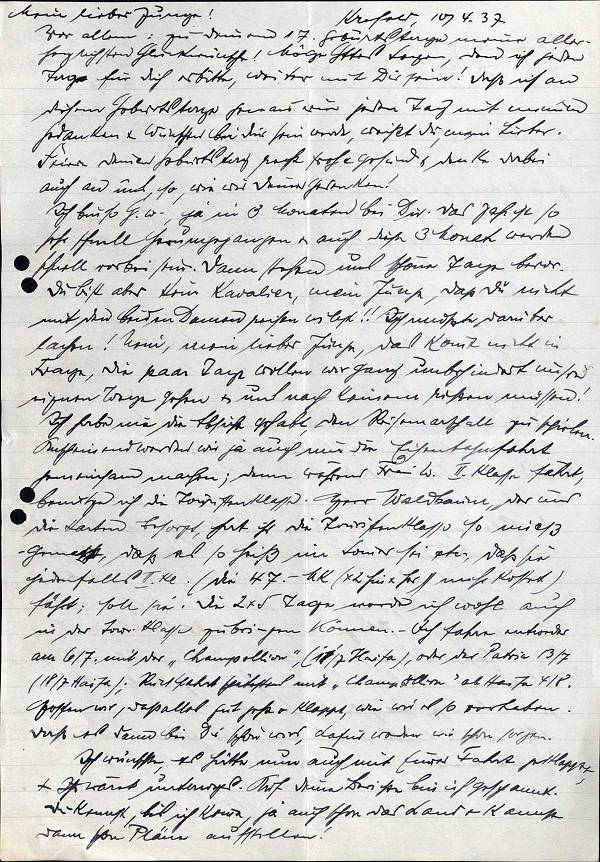 Mein lieber Junge! Krefeld, 10/4.37
Vor allem: zu Deinem 17. Geburtstage meine aller-
herzlichsten Glückwünsche! Möge Gottes Segen, den ich jeden
Tag für Dich erbitte, weiter mit Dir sein! Daß ich an
diesem Geburtstage genau wie jeden Tag mit meinen
Gedanken & Wünschen bei Dir sein werde, weißt Du, mein Lieber.
Feiere Deinen Geburtstag recht froh & gesund & denke dabei
auch an uns, so, wie wir Deiner gedenken!
Ich bin so G.w., ja in 3 Monaten bei Dir. Das Jahr ist so
sehr schnell herumgegangen & auch diese 3 Monate werden
schnell vorbei sein. Dann stehen uns schöne Tage bevor.
Du bist aber kein Kavalier, mein Junge, daß Du nicht
mit den beiden Damen reisen willst!! Ich mußte darüber
lachen! Nein, mein lieber Junge, das kommt nicht in
Frage, die paar Tage wollen wir ganz ungehindert unsere
eigenen Wege gehen & uns nach keinem richten müssen!
Ich habe nie die Absicht gehabt den Reisemarschall zu spielen.
werden wir ja auch nur die Eisenbahnfahrt
gemeinsam machen; denn während Frau W. II. Klasse fährt,
benutze ich die Touristenklasse. Herr Waldbaum, der uns
die Karten besorgt, hat ihr die Touristenklasse so mies
gemacht, daß es so heiß im Sommer sei etc., daß sie
jedenfalls II. Kl. (die 47.– RM mehr kostet)
fährt; soll sie. Die 2x5 Tage werde ich wohl auch
in der Tour. Klasse zubringen können. – Ich fahre entweder
am 6/7. mit der „Champollion", (11/7 Haifa), oder der Patria 13/7
(18/7 Haifa); Rückfahrt mit „Champollion" ab Haifa 4/8.
Hoffen wir, daß alles gut geht & klappt, wie wir es so vorhaben.
Daß es dann bei Dir schön wird, dafür werden wir schon sorgen.
Ich wünschte es hätte nun auch mit Eurer Fahrt geklappt,
& Ihr wäret unterwegs. Auf Deine Berichte bin ich gespannt.
Du kennst, bis ich komme, ja auch schon das Land & kannst
dann schon Pläne aufstellen!